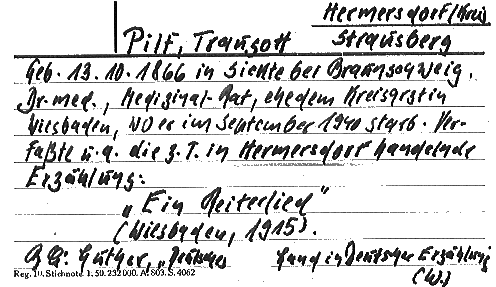 Hermersdorf/Kreis
Pilf, Traugott Strausberg
Geb. 13.10.1866 in Sickte bei Braunschweig.
Dr. med., Medizinal-Rat, ehedem Kreisarzt in
Wiesbaden, wo er im September 1940 starb. Ver-
faßte u.a. die z.T. in Hermersdorf handelnde
Erzählung:
„Ein Reiterlied"
(Wiesbaden, 1915).
Luther, „Deutsches Land in Deutscher Erzählung
(W.)
Reg. 10. Stichnote 1. 50. 232000. A. 803. S. 4062